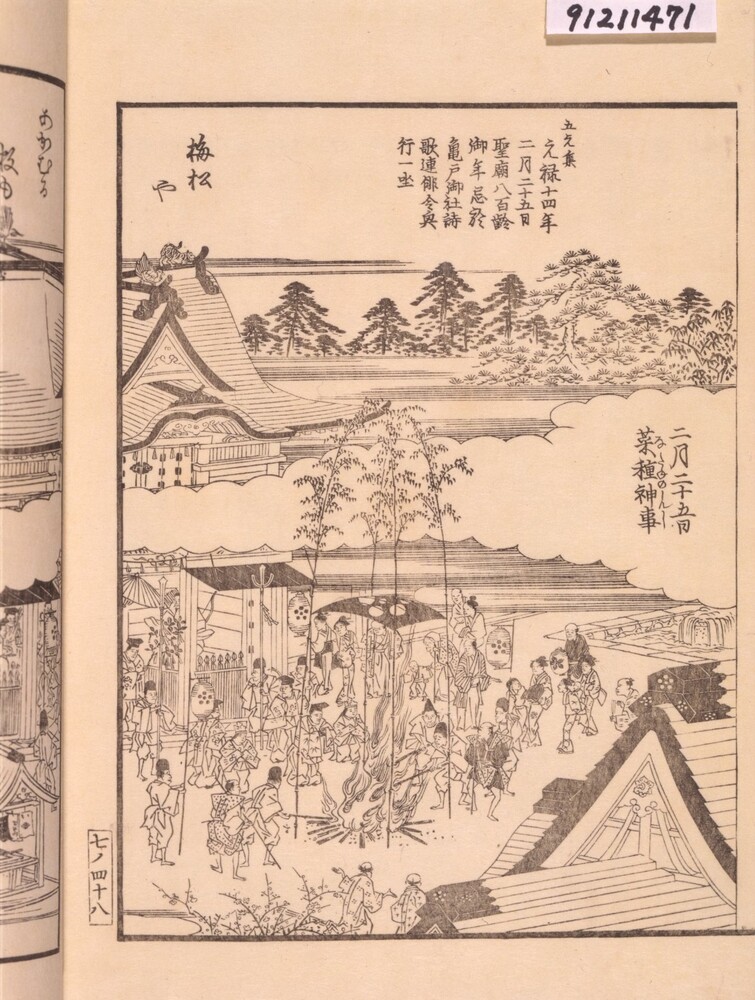 91211471
五元集
元禄十四年
二月二十五日
聖廟八百齢
御年忌於
亀戸御社詩
歌連俳令興
行一坐
梅松
や
二月二十五日
菜種神事
なたねのしんじ
七ノ四十八
あかむる